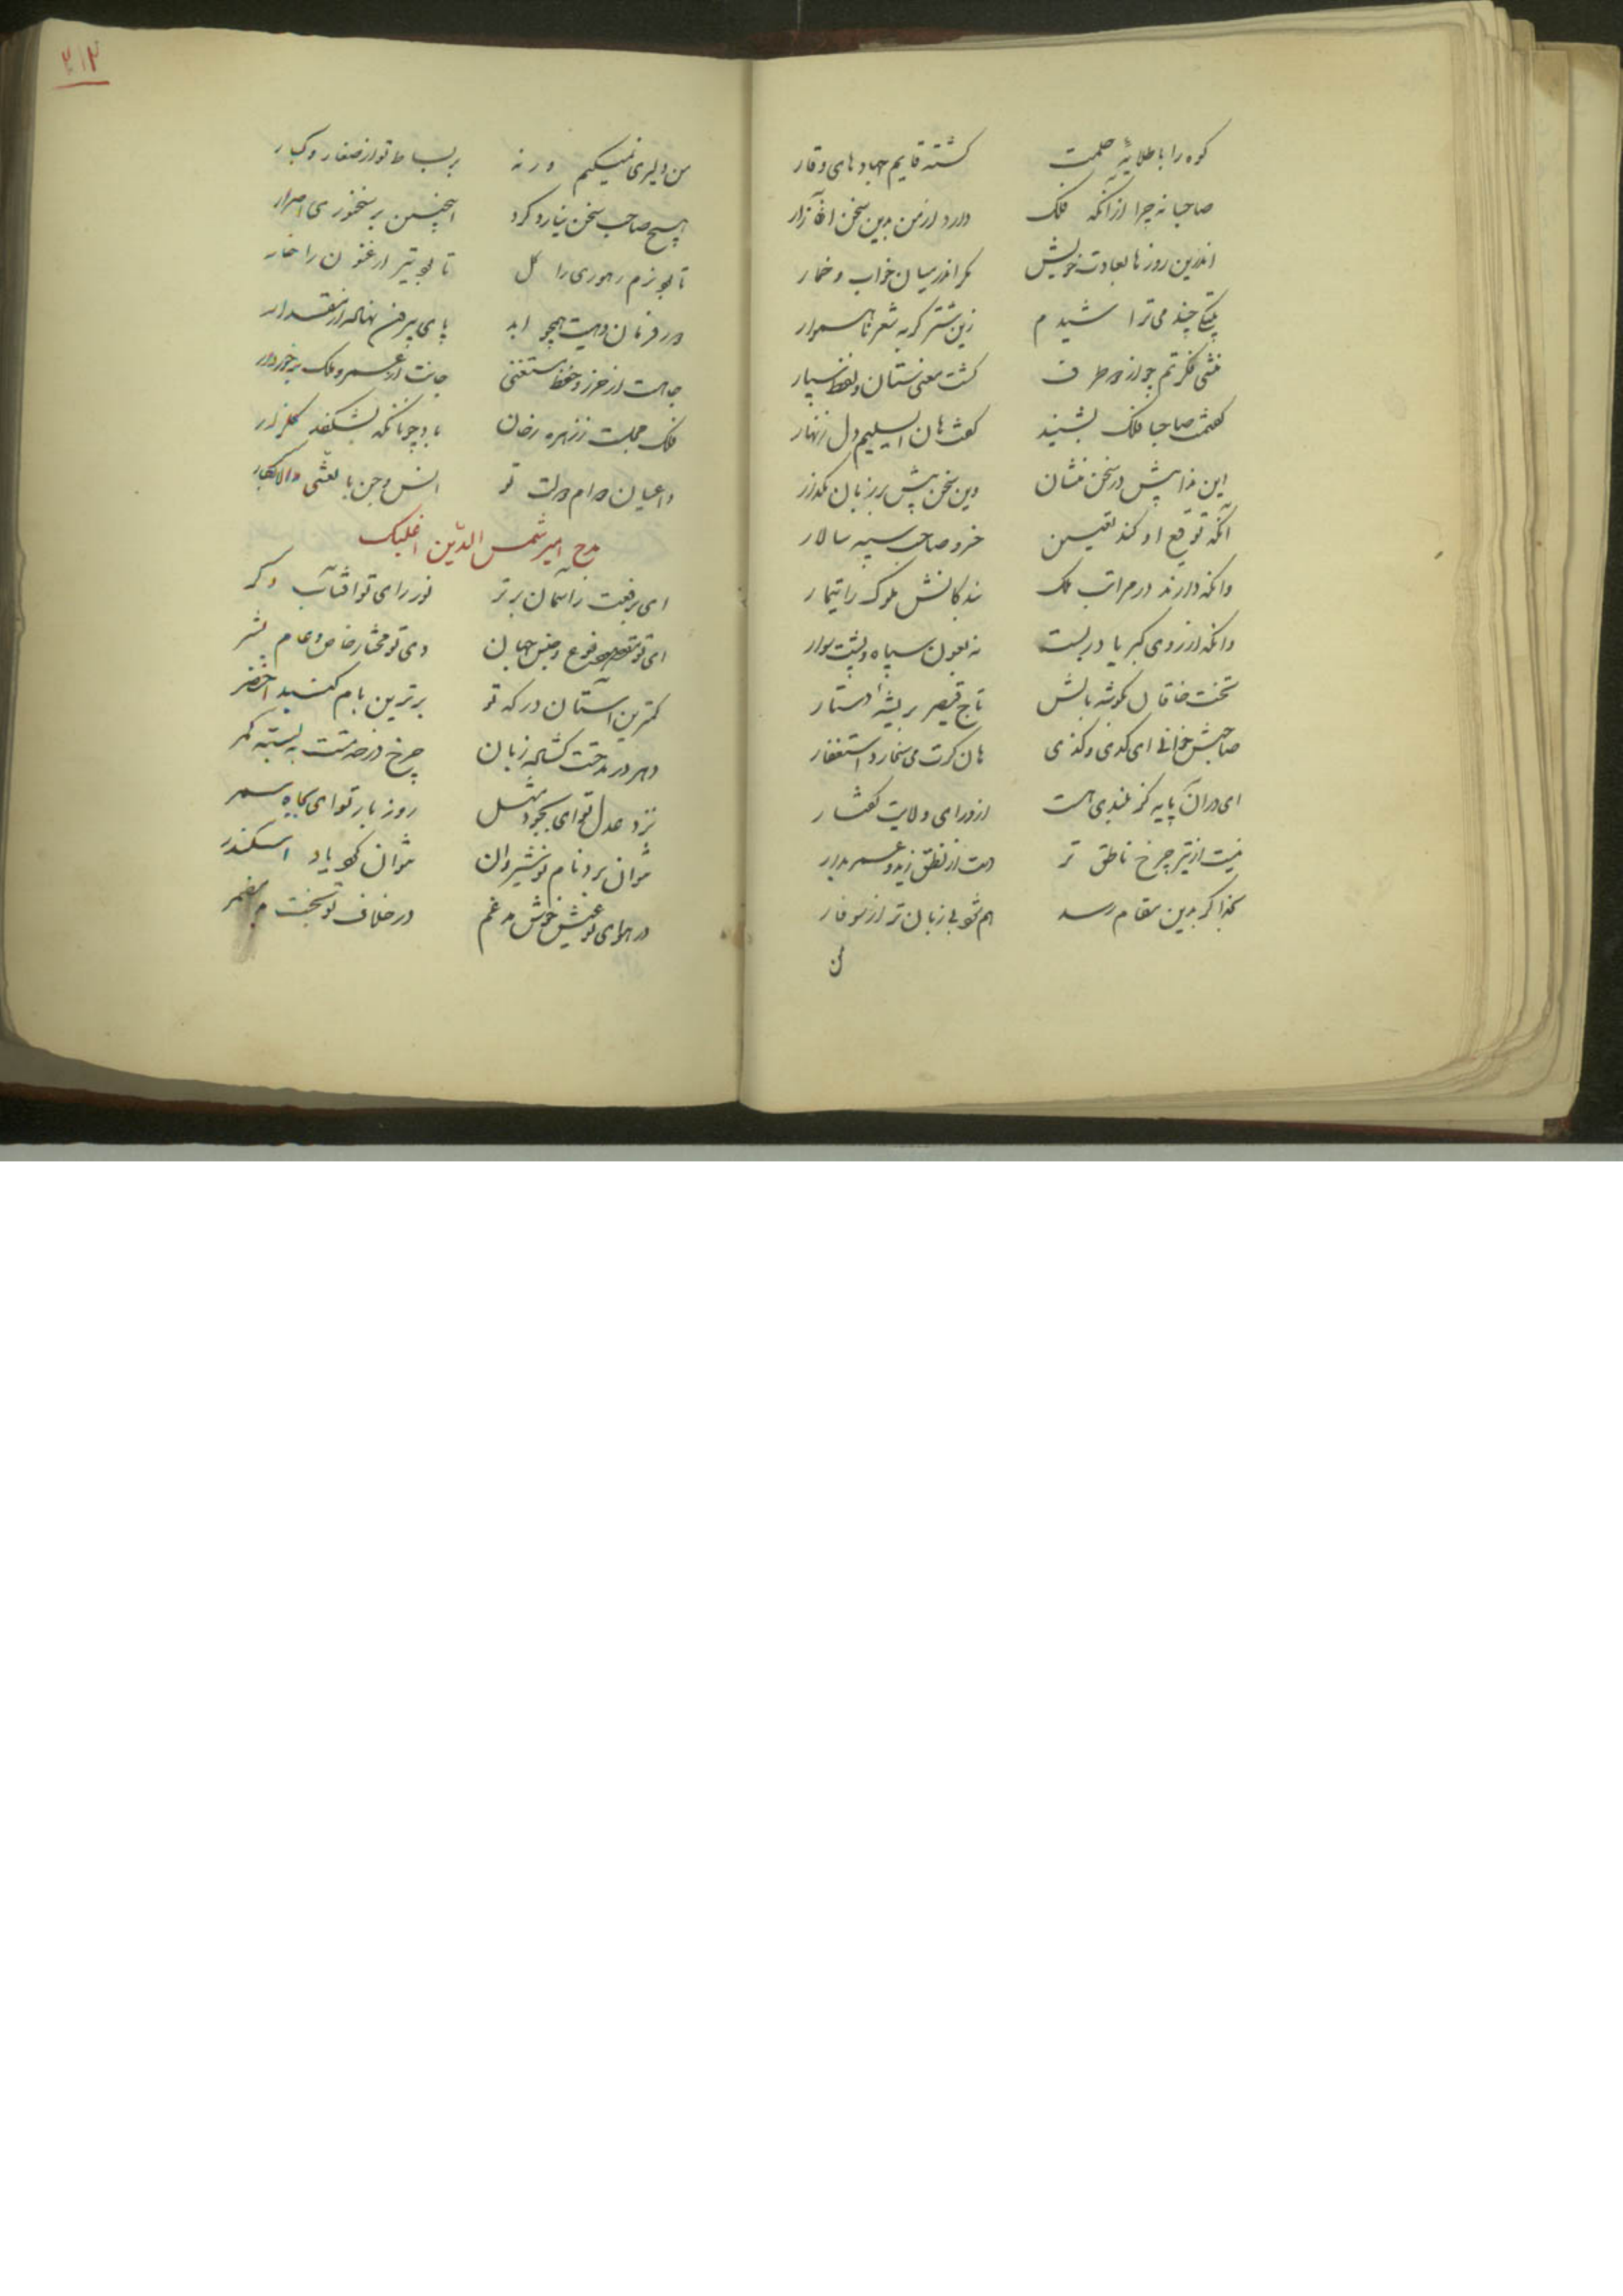 کوه را با طلایهٔ حلمت کشته قایم جهادهای وقار
صاحبا نه چرا ازانکه فلک دارد از من بدین سخن آزار
اندرین روزها بعادت خویش مکر اندر میان خواب و خمار
بیتکی چند می تراشیدم زین شتر کربه شعر ناهموار
منشی فکرتم چو از دو طرف کشت معنی ستان و لفظ سپار
کفتمت صاحبا فلک بشنید کفت هان ای سلیم دل زنهار
این ندا پیش در سخن منشان وین سخن پیش بر زبان مکذار
آنکه توقیع او کند تعیین خرد صاحب سپه سالار
وانکه دارند در مراتب ملک بندکانش ملوک را تیمار
وانکه از روی کبریا در بست نه بعون سپاه و پشت سوار
تخت خاقان بکوشه بالش تاج قیصر بریشه دستار
صاحبش خوانی ای کدی و کذی هان کرت می نخارد استغفار
ای دران پایه کز بلندی هست از ورای ولایت کفتار
نیست از تیر چرخ ناطق تر هست از نطق زید و عمرو بدار
بخدا کر بدین مقام رسد هم شو بی زبان تر از سوفار
من
۲۱۲
من دلیری نمیکنم ورنه بر بساط تو از صغار و کبار
هیچ صاحب سخن نیارد کرد اینچنین بر سخنوری اصرار
تا بود بزم زهره را کل تا بود تیر ارغنون را خار
در فرمان دهیت همچو ابد پای بیرون نهاده از مقدار
جاهت از حرز و حفظ مستغنی جانت از عمر و ملک برخوردار
فلک مجلست ز زهره رخان باد چونانکه بشکفد کلزار
داعیان دوام دولت تو انس و جن بالعشی والابکار
مدح امیر شمس الدین اغلبک
ای برفعت ز آسمان برتر نور رای تو آفتاب دکر
ای تو مقصود نوع و جنس جهان وی تو مختار خاص و عام بشر
کمترین آستان درکه تو برترین بام کنبد اخضر
دهر در مدحتت کشاده زبان چرخ در خدمتت ببسته کمر
نزد عدل تو ای بجود مثل روز بار تو ای بجاه سمر
نتوان برد نام نوشیروان نتوان کرد یاد اسکندر
در هوای تو عیش خوش مدغم در خلاف تو بخت بد مضمر